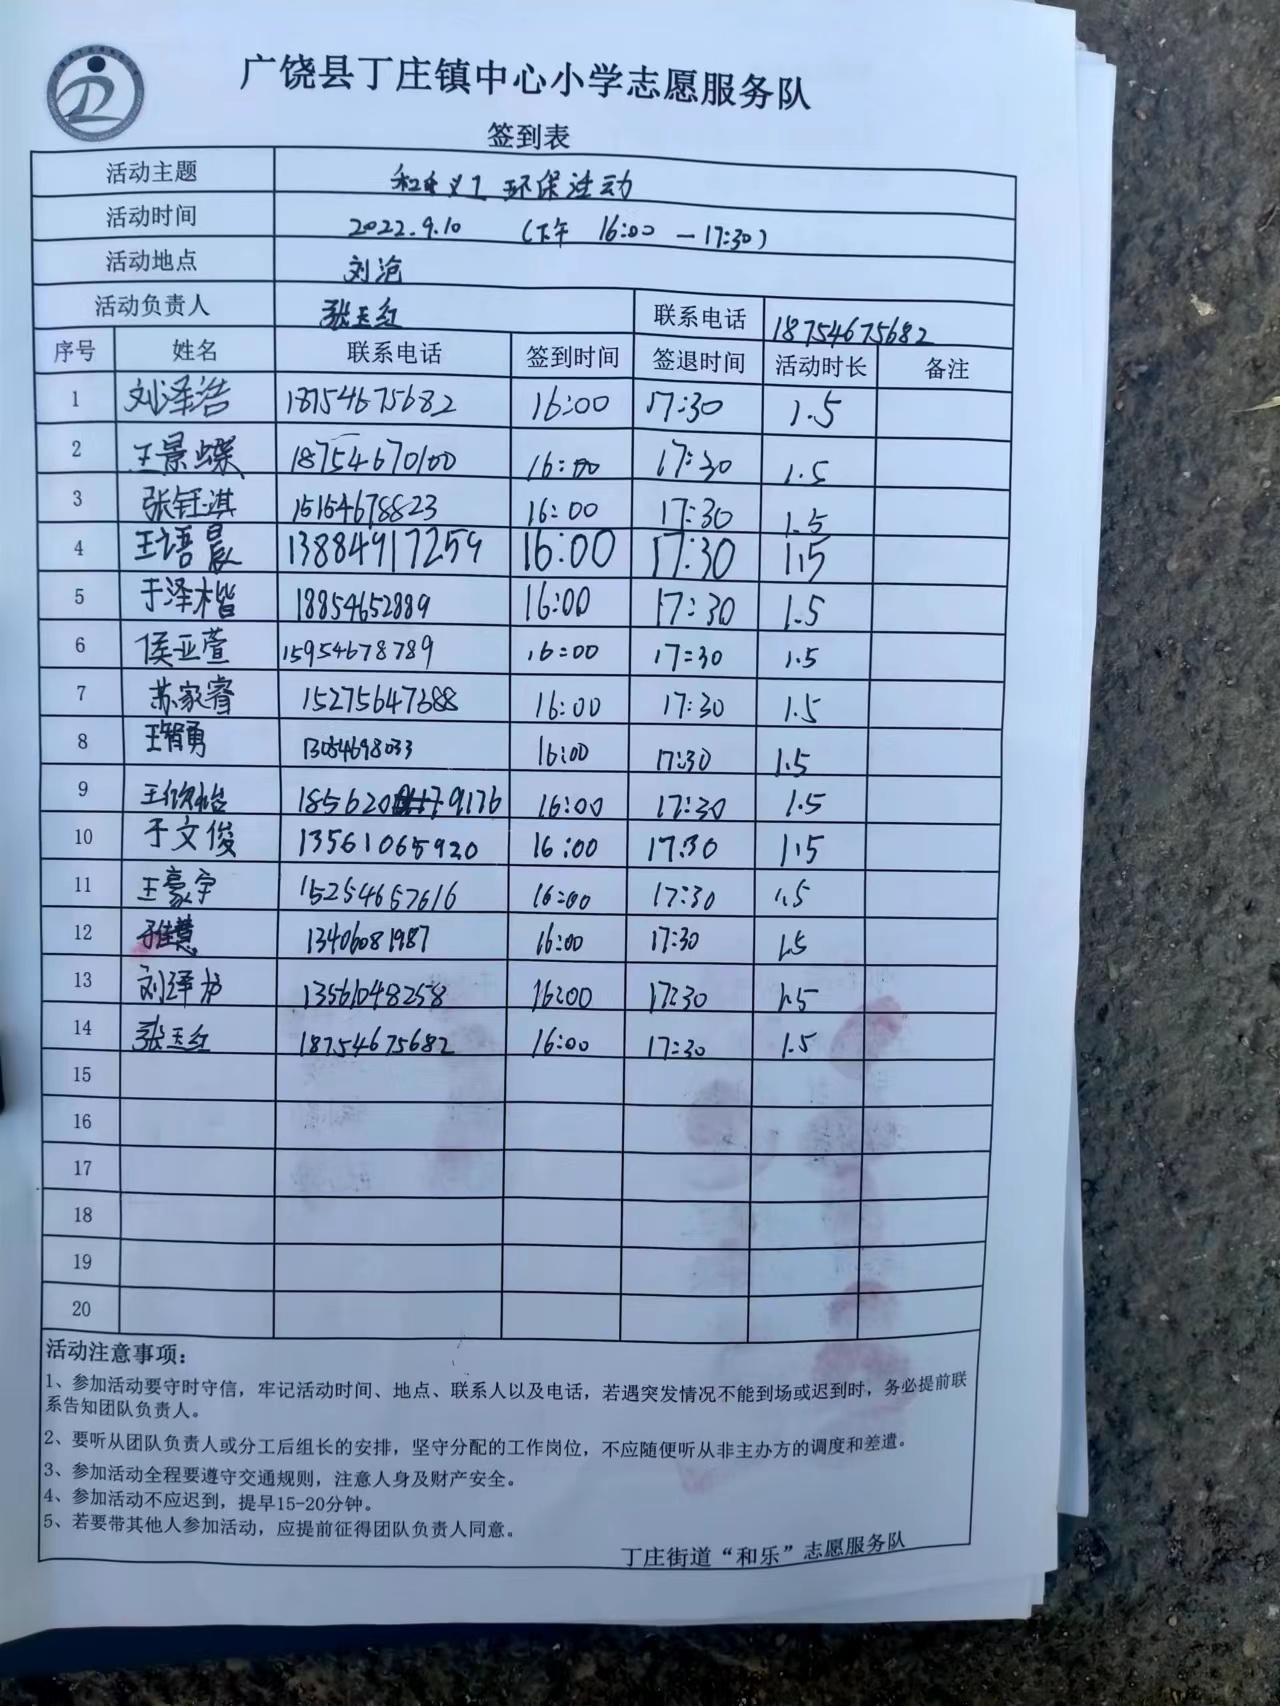 广饶县丁庄镇中心小学志愿服务队
签到表
活动主题 义工环保活动
活动时间 2022.9.10 (下午 16:00 — 17:30)
活动地点 刘沧
活动负责人 张玉红 联系电话 18754675682
序号 姓名 联系电话 签到时间 签退时间 活动时长 备注
1 刘泽浩 18754675682 16:00 17:30 1.5
2 王景蝶 18754670100 16:00 17:30 1.5
3 张钰淇 15154678823 16:00 17:30 1.5
4 王语晨 13884917259 16:00 17:30 1.5
5 于泽楷 18854652889 16:00 17:30 1.5
6 侯亚萱 15954678789 16:00 17:30 1.5
7 苏家睿 15275647388 16:00 17:30 1.5
8 王智勇 13054698033 16:00 17:30 1.5
9 王欣怡 185620 9176 16:00 17:30 1.5
10 于文俊 13561065920 16:00 17:30 1.5
11 王豪宇 15254657616 16:00 17:30 1.5
12 13406081987 16:00 17:30 1.5
13 刘泽 13561048258 16:00 17:30 1.5
14 张玉红 18754675682 16:00 17:30 1.5
15
16
17
18
19
20
活动注意事项：
1、参加活动要守时守信，牢记活动时间、地点、联系人以及电话，若遇突发情况不能到场或迟到时，务必提前联
系告知团队负责人。
2、要听从团队负责人或分工后组长的安排，坚守分配的工作岗位，不应随便听从非主办方的调度和差遣。
3、参加活动全程要遵守交通规则，注意人身及财产安全。
4、参加活动不应迟到，提早15-20分钟。
5、若要带其他人参加活动，应提前征得团队负责人同意。
丁庄街道“和乐”志愿服务队